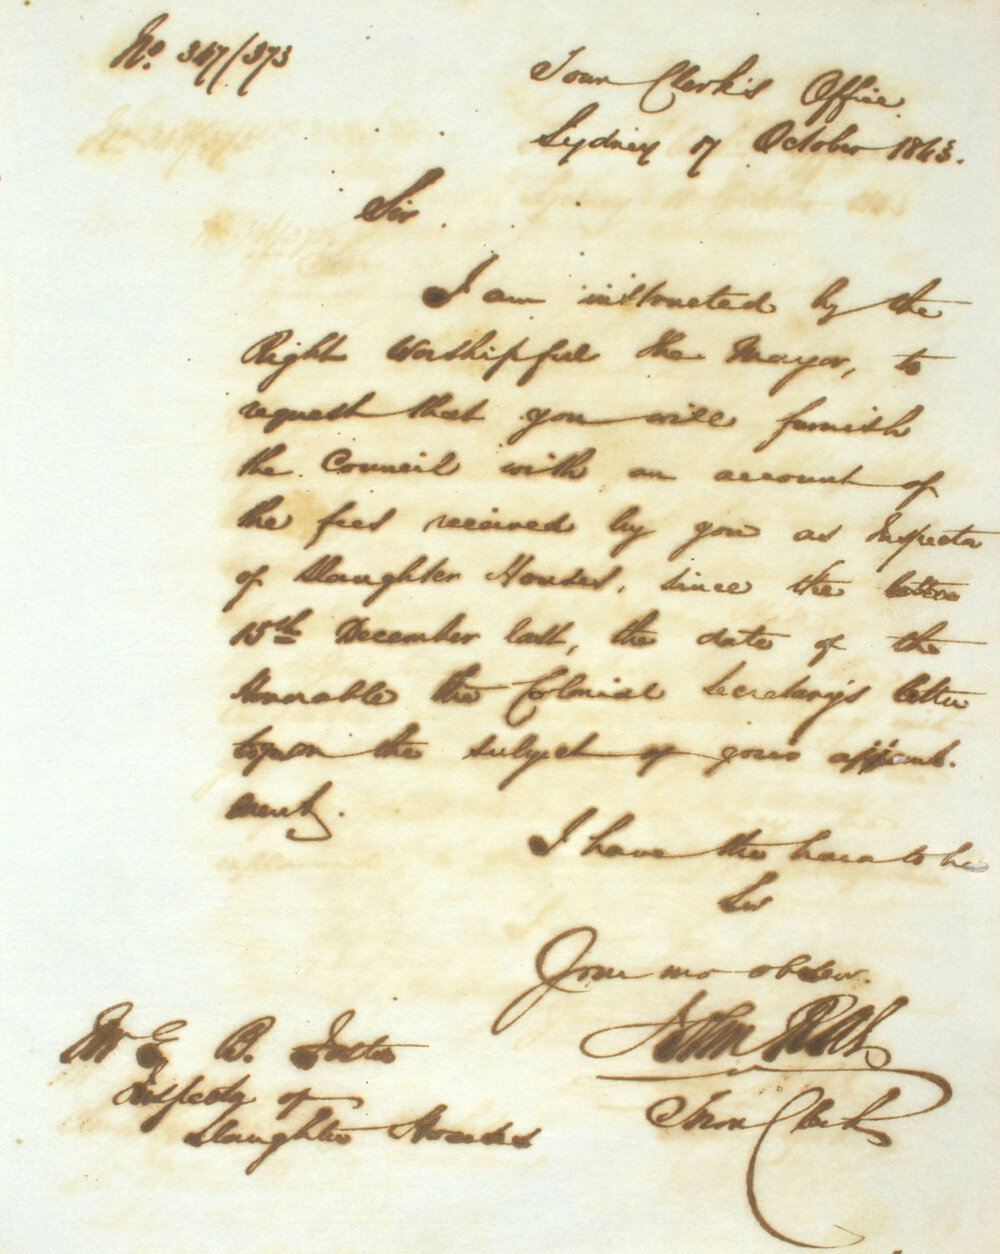 No. 347/373
Town Clerk's Office
Sydney 17 October 1843.
Sir.
I am instructed by the
Right Worshipful the Mayor, to
request that you will furnish
the Council with an account of
the fees received by you as Inspector
of Slaughter Houses, since the
15th December last, the date of the
Honorable the Colonial Secretary's letter
upon the subject of your appoint-
ment.
I have the honor to be
Sir
Your mo obt Serv.
John
Town Clerk
Mr E B.
Inspector of
Slaughter Houses